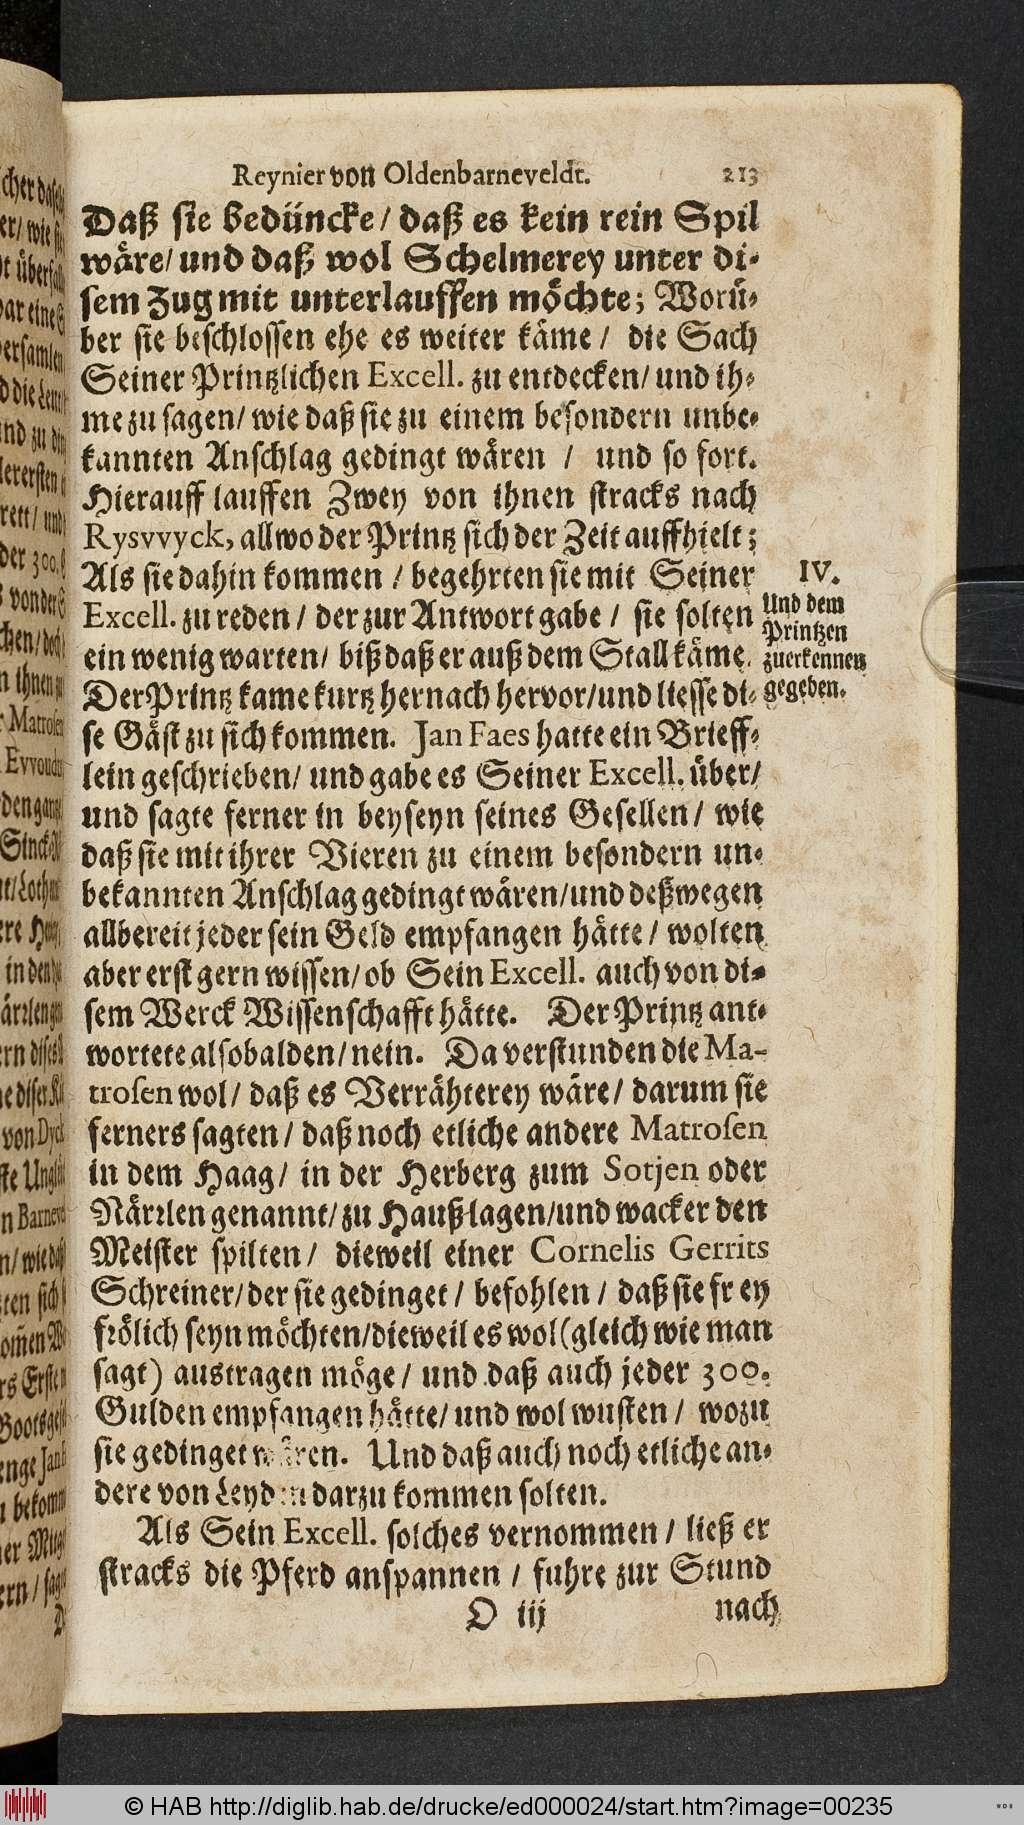 Reynier von Oldenbarneveldt. 213
Daß sie bedüncke / daß es kein rein Spil
wäre / und daß wol Schelmerey unter di-
sem Zug mit unterlauffen möchte; Worü-
ber sie beschlossen ehe es weiter käme / die Sach
Seiner Printzlichen Excell. zu entdecken / und ih-
me zu sagen / wie daß sie zu einem besondern unbe-
kannten Anschlag gedingt wären / und so fort.
Hierauff lauffen Zwey von ihnen stracks nach
Rysvvyck, allwo der Printz sich der Zeit auffhielt;
Als sie dahin kommen / begehrten sie mit Seiner
Excell. zu reden / der zur Antwort gabe / sie solten
ein wenig warten / biß daß er auß dem Stall käme.
Der Printz kame kurtz hernach hervor / und liesse di-
se Gäst zu sich kommen. Jan Faes hatte ein Brieff-
lein geschrieben / und gabe es Seiner Excell. über /
und sagte ferner in beyseyn seines Gesellen / wie
daß sie mit ihrer Vieren zu einem besondern un-
bekannten Anschlag gedingt wären / und deßwegen
allbereit jeder sein Geld empfangen hätte / wolten
aber erst gern wissen / ob Sein Excell. auch von di-
sem Werck Wissenschafft hätte. Der Printz ant-
wortete alsobalden / nein. Da verstunden die Ma-
trosen wol / daß es Verrähterey wäre / darum sie
ferners sagten / daß noch etliche andere Matrosen
in dem Haag / in der Herberg zum Sotjen oder
Närrlen genannt / zu Hauß lagen / und wacker den
Meister spilten / dieweil einer Cornelis Gerrits
Schreiner / der sie gedinget / befohlen / daß sie frey
frölich seyn möchten / dieweil es wol (gleich wie man
sagt) austragen möge / und daß auch jeder 300.
Gulden empfangen hätte / und wol wusten / wozu
sie gedinget wären. Und daß auch noch etliche an-
dere von Leyden darzu kommen solten.
Als Sein Excell. solches vernommen / ließ er
stracks die Pferd anspannen / fuhre zur Stund
O iij nach
IV.
Und dem
Printzen
zuerkennen
gegeben.
© HAB http://diglib.hab.de/drucke/ed000024/start.htm?image=00235